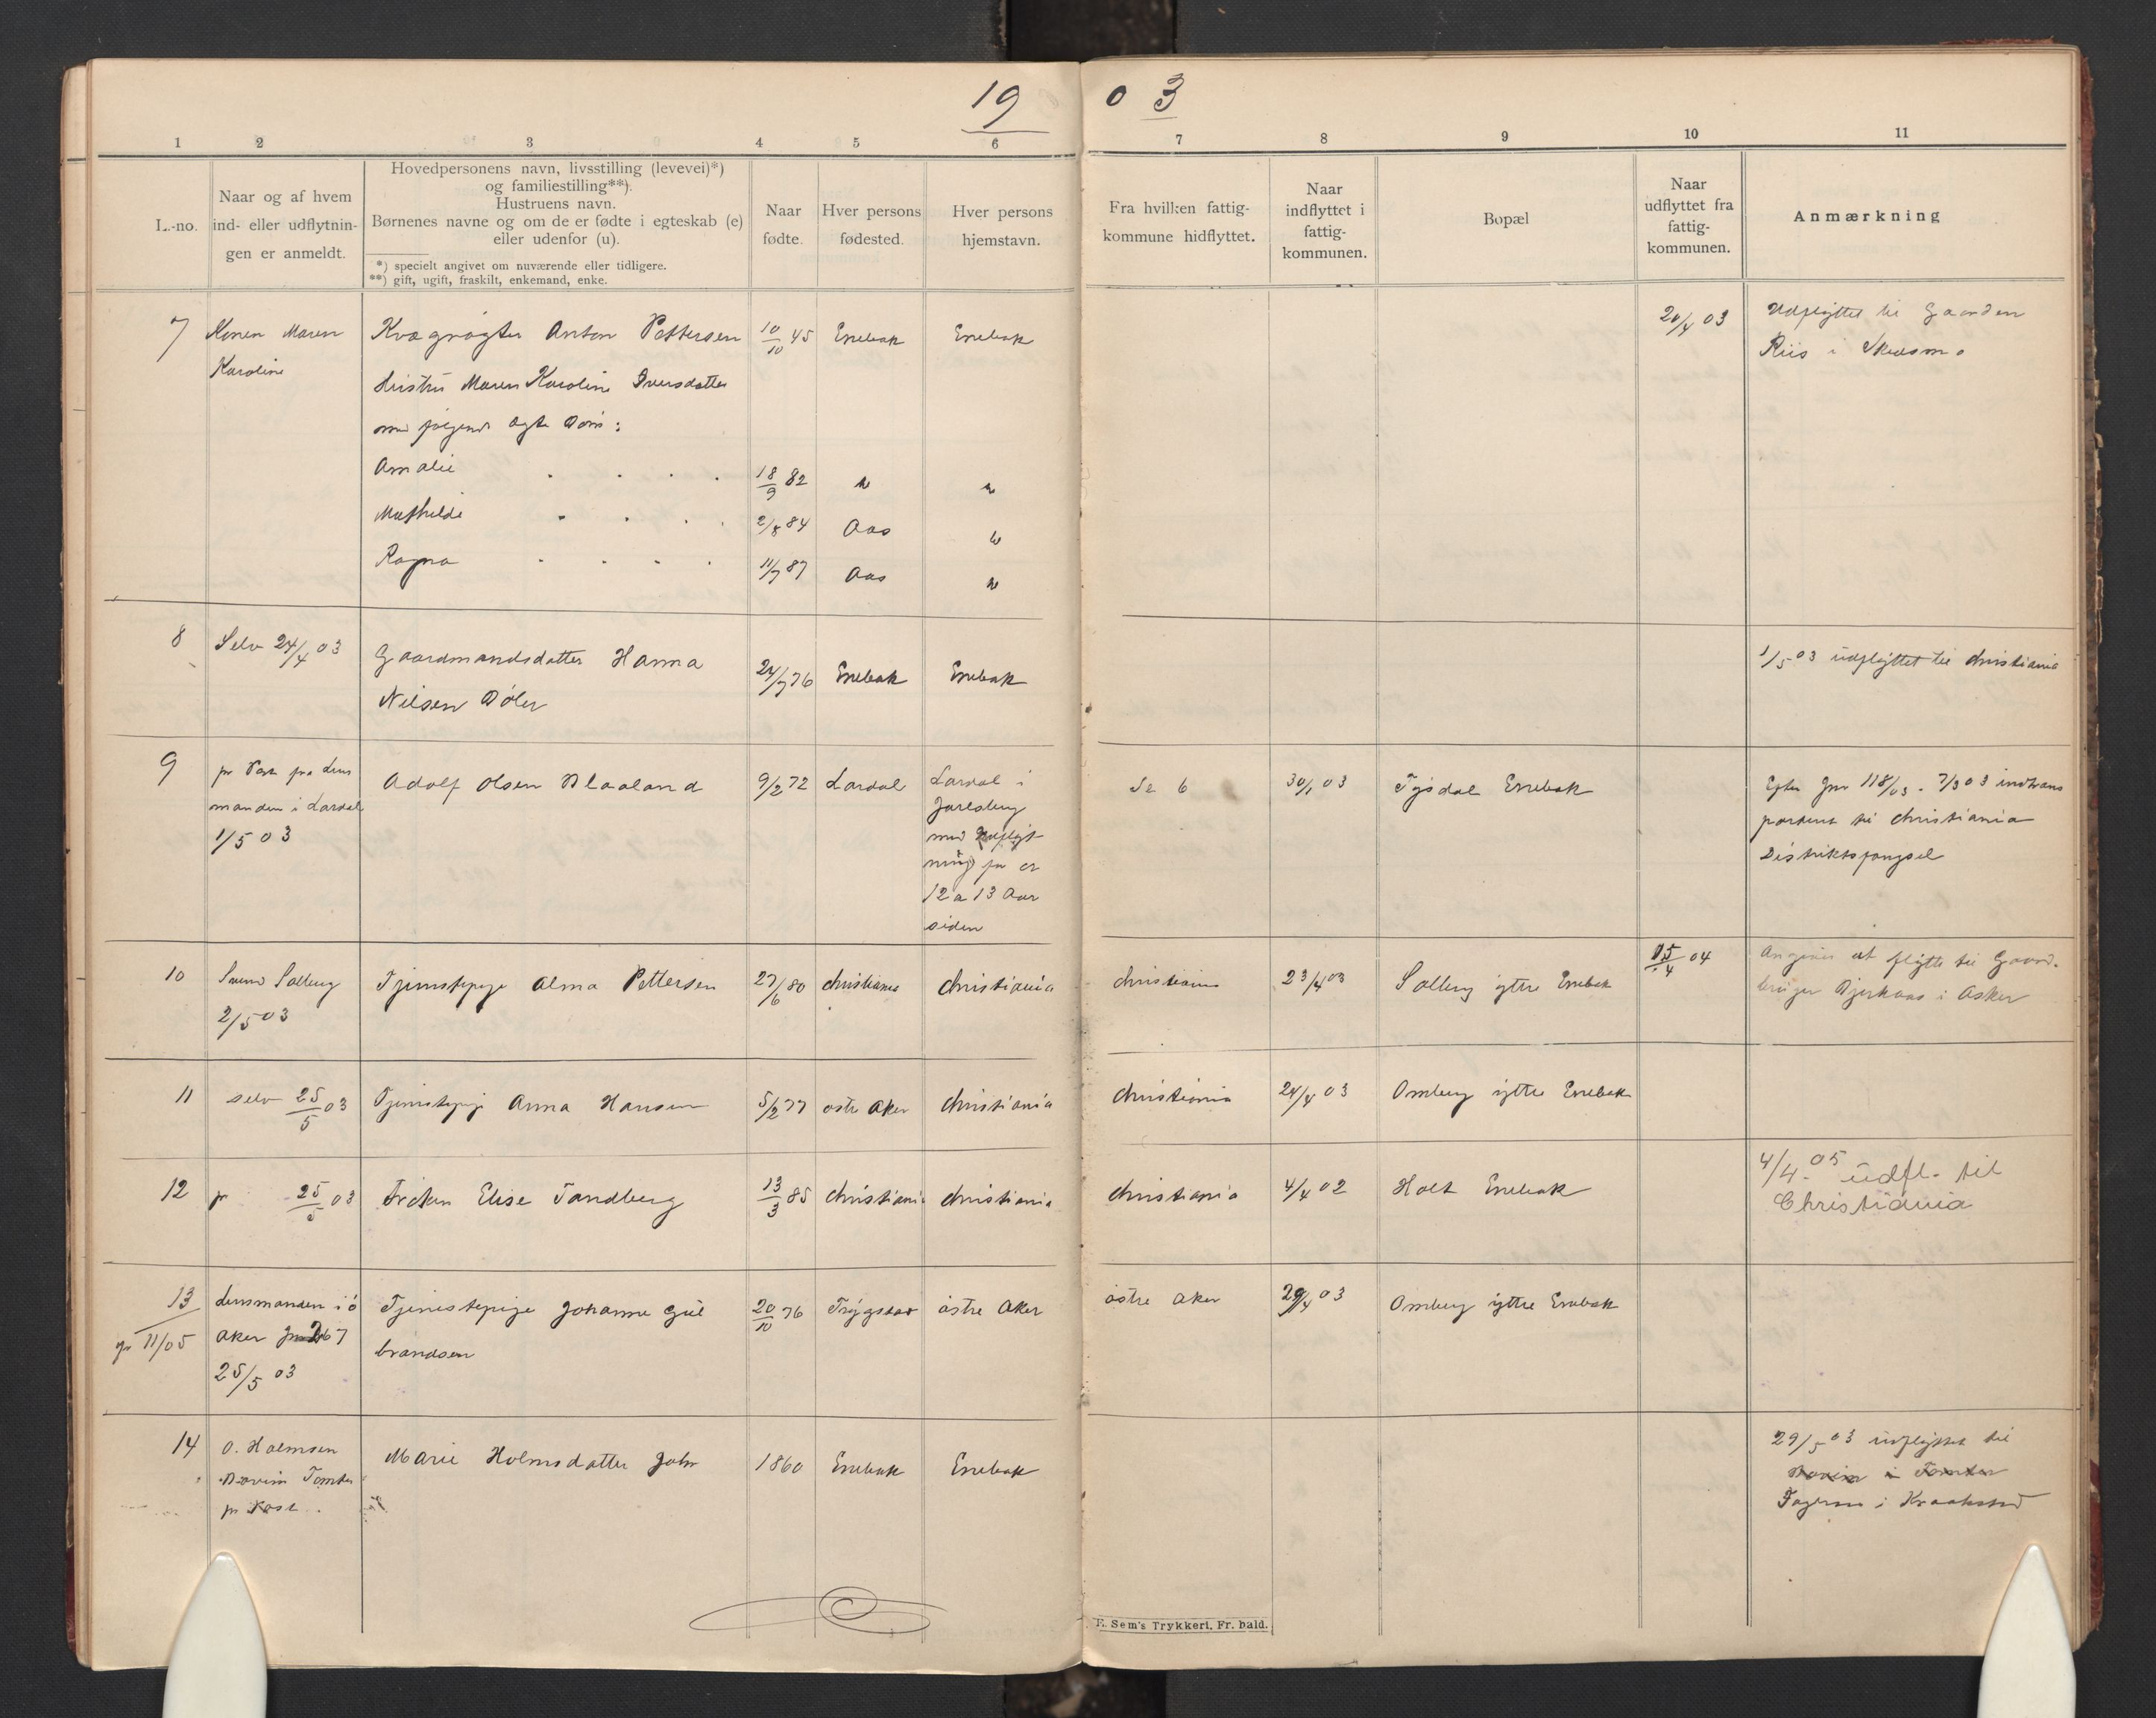 19 03
1 2 3 4 5 6 7 8 9 10 11
L.-no.
Naar og af hvem
ind- eller udflytnin-
gen er anmeldt.
Hovedpersonens navn, livsstilling (levevei)*)
og familiestilling**).
Hustruens navn.
Børnenes navne og om de er fødte i egteskab (e)
eller udenfor (u).
*) specielt angivet om nuværende eller tidligere.
**) gift, ugift, fraskilt, enkemand, enke.
Naar
fødte.
Hver persons
fødested.
Hver persons
hjemstavn.
Fra hvilken fattig-
kommune hidflyttet.
Naar
indflyttet i
fattig-
kommunen.
Bopæl
Naar
udflyttet fra
fattig-
kommunen.
Anmærkning
7 Konen Maren Kvægrøgter Anton Pettersen 10/10 45 Enebak Enebak 20/4 03 Udflyttet til Gaarden
Karoline Riis i Skedsmo
Hustru Maren Karoline Iversdatter
med følgende ægte Børn:
Amalie 18/9 82 " "
Mathilde 2/8 84 Aas "
Ragna 11/7 87 Aas "
8 Selv 24/4 03 Gaardmandsdatter Hanna 24/7 76 Enebak Enebak 1/5 03 udflyttet til Christiania
Nilsen Bøler
9 pr Post fra Lens Adolf Olsen Blaaland 9/2 72 Lardal Lardal i Se 6 30/1 03 Tysdal Enebak Efter Jnr 118/03 - 7/3 03 indtrans
manden i Lardal Jarlsberg porteret til Christiania
1/5 03 med udflyt Distriktsfængsel
ning for er
12 a 13 Aar
siden
10 Svend Solberg Tjenestepige Alma Pettersen 27/6 80 Christiania Christiania Christiania 23/4 03 Solberg ytre Enebak 15/4 04 Angives at flytte til Gaard-
2/5 03 bruger Bjerkaas i Asker
11 selv 25/5 03 Tjenestepige Anna Hansen 5/2 77 østre Aker Christiania Christiania 24/4 03 Omberg ytre Enebak
12 pr 25/5 03 Frøken Elise Tandberg 13/3 85 Christiania Christiania Christiania 4/4 02 Holt Enebak 4/4-05 udfl. til
Christiania
13 Lensmanden i ø Tjenestepige Johanne Gul 20/10 76 Trygstad østre Aker østre Aker 29/4 03 Omberg ytre Enebak
gr 11/05 Aker Jnr 267 brandsen
25/5 03
14 O. Holmsen Marie Holmsdatter 1860 Enebak Enebak 29/5 03 udflyttet til
Bovim Tomter Bovim i Tomter
pr Post. i Kraakstad
E. Sem's Trykkeri, Fr. hald.